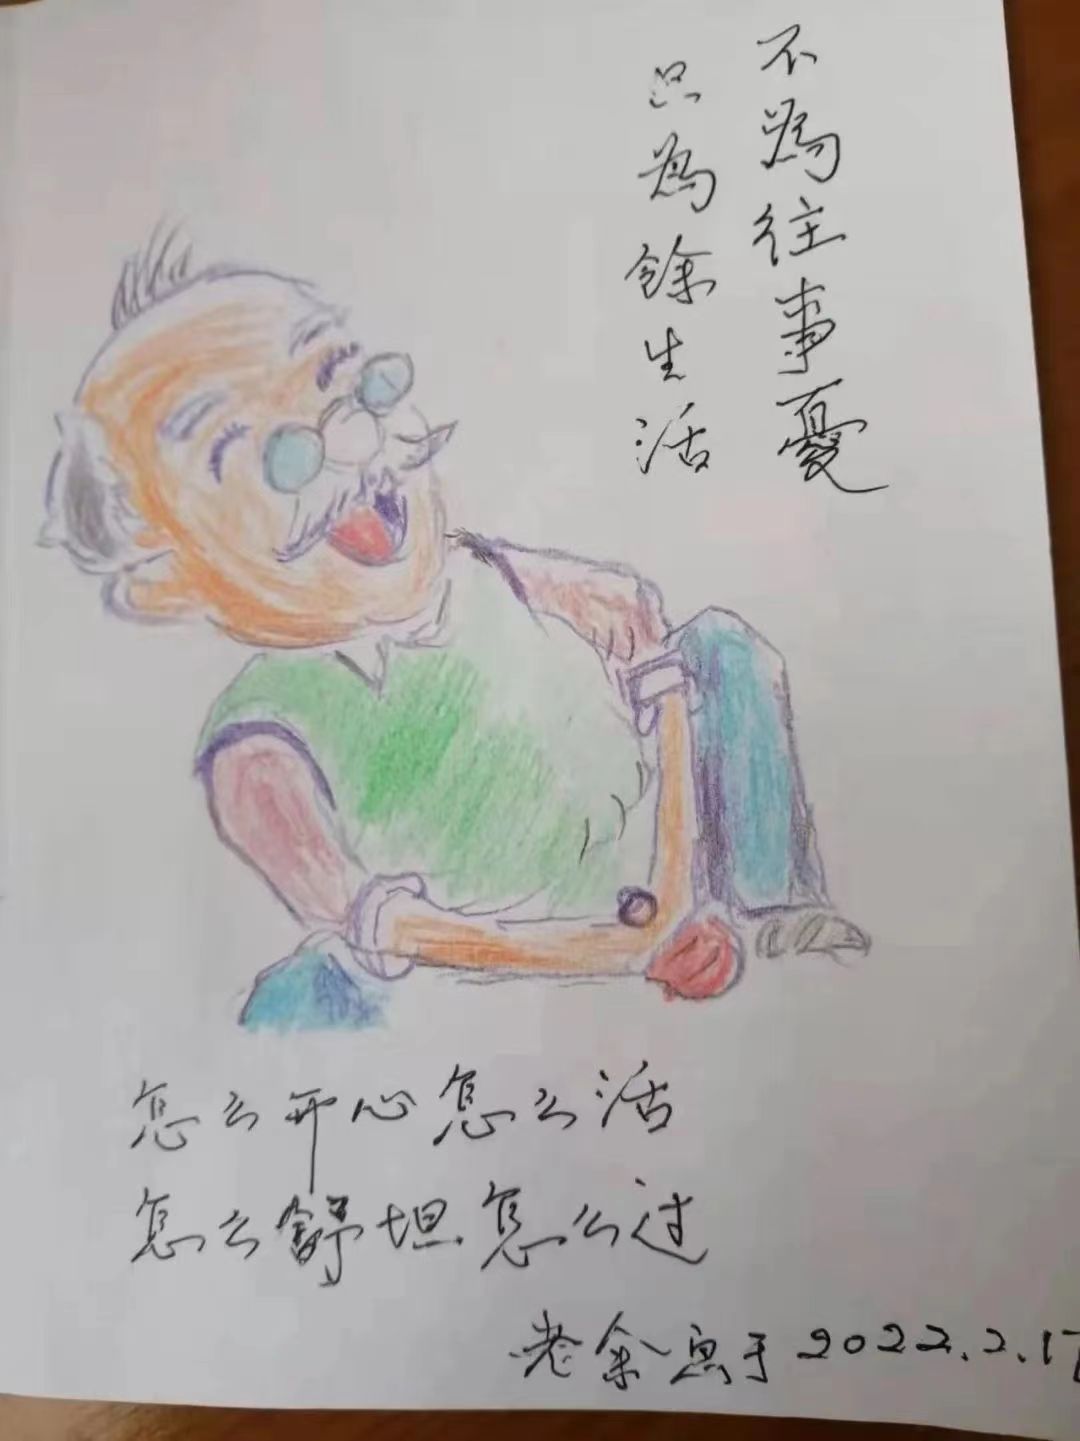 不為往事憂
只為餘生活
怎么开心怎么活
怎么舒坦怎么过
老余写于2022.2.17